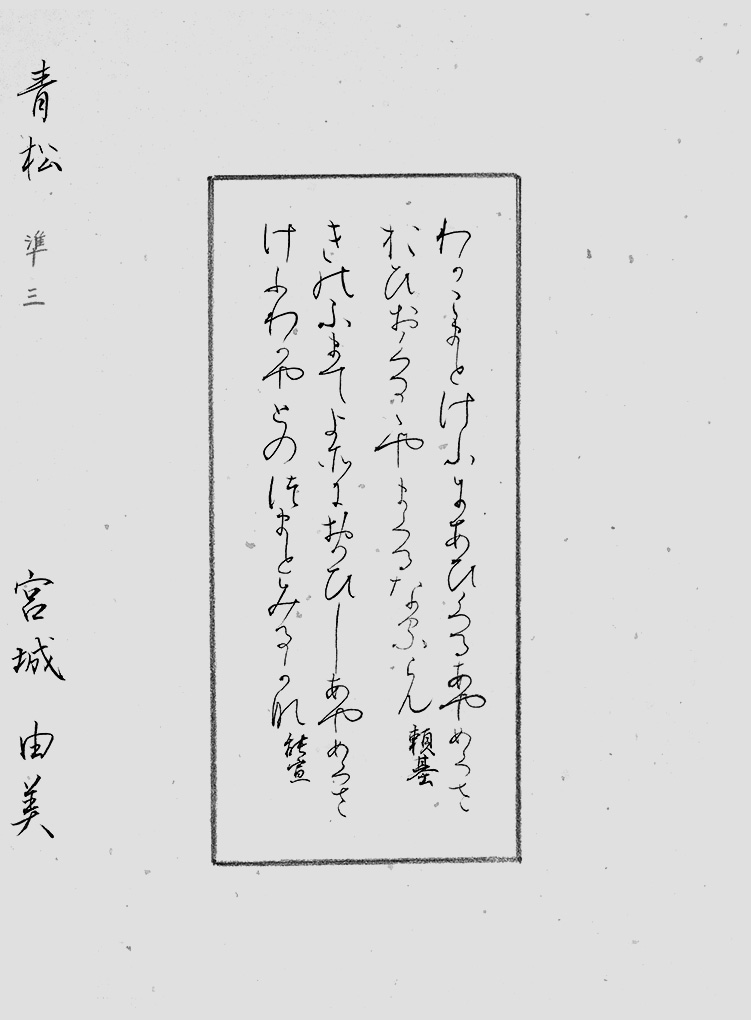 わかこまとけふにあひくるあやめくさ
おひおくるゝやまくるなるらん 頼基
きのふまてよそにおもひしあやめくさ
けふわかやとのつまとみるかな 能宣
青松 準三 宮城 由美